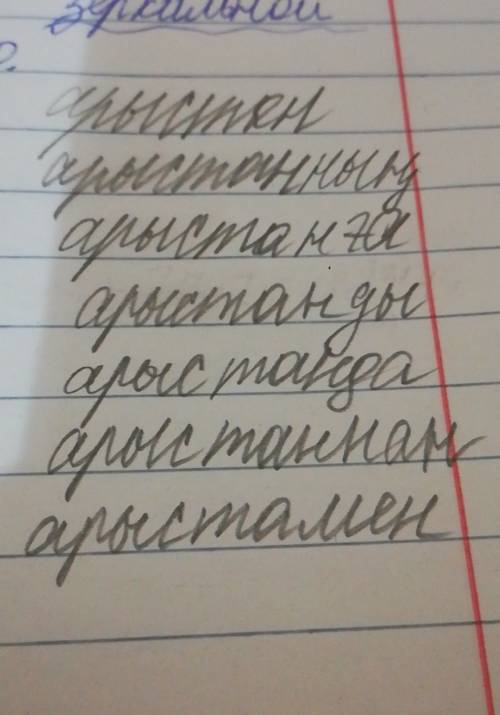 зеркальной
арыстан
арыстанның
арыстанға
арыстанды
арыстанда
арыстаннан
арыстамен